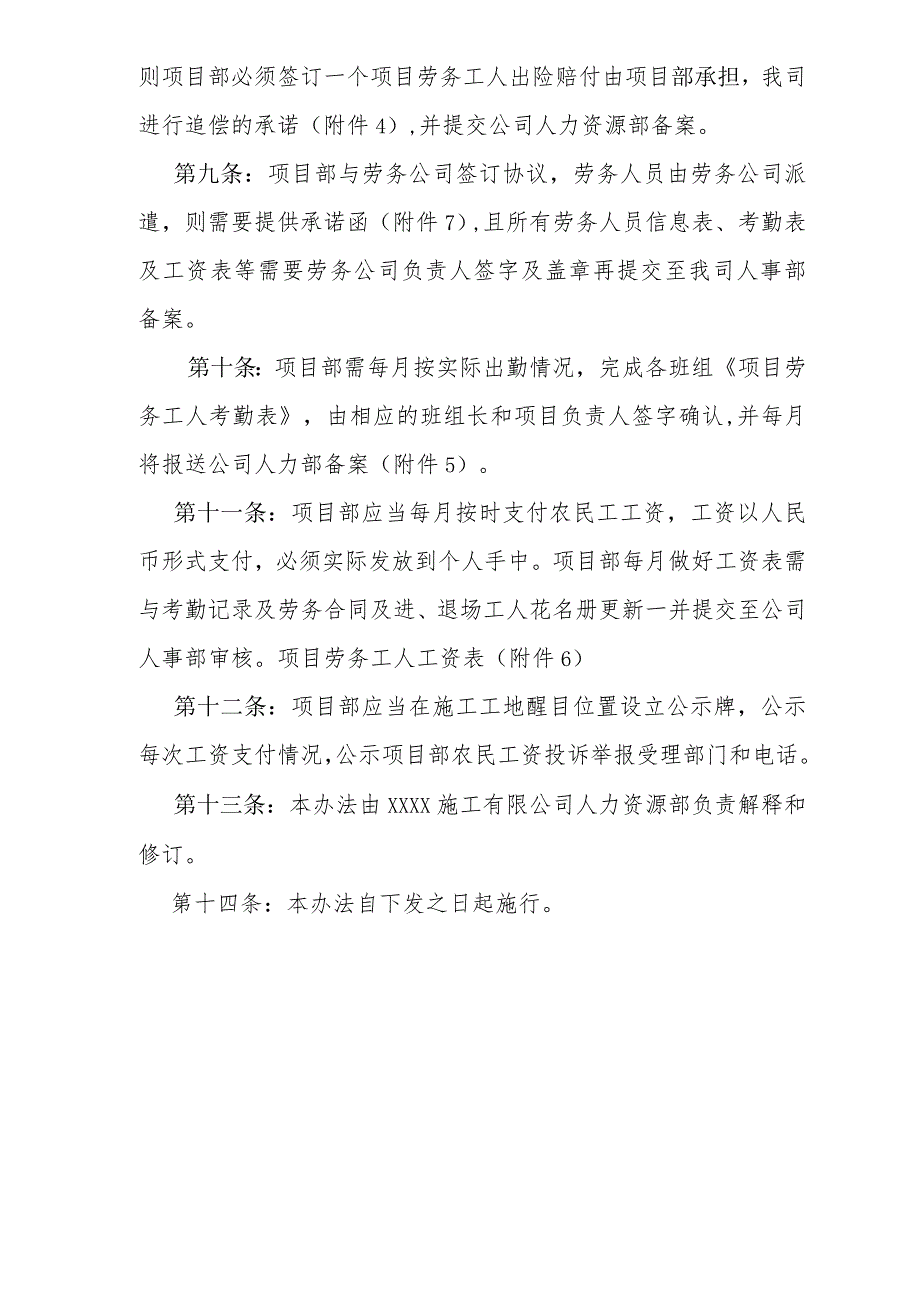 则项目部必须签订一个项目劳务工人出险赔付由项目部承担，我司
进行追偿的承诺（附件4）,并提交公司人力资源部备案。
第九条：项目部与劳务公司签订协议，劳务人员由劳务公司派
遣，则需要提供承诺函（附件7）,且所有劳务人员信息表、考勤表
及工资表等需要劳务公司负责人签字及盖章再提交至我司人事部
备案。
第十条：项目部需每月按实际出勤情况，完成各班组《项目劳
务工人考勤表》，由相应的班组长和项目负责人签字确认,并每月
将报送公司人力部备案（附件5）。
第十一条：项目部应当每月按时支付农民工工资，工资以人民
币形式支付，必须实际发放到个人手中。项目部每月做好工资表需
与考勤记录及劳务合同及进、退场工人花名册更新一并提交至公司
人事部审核。项目劳务工人工资表（附件6）
第十二条：项目部应当在施工工地醒目位置设立公示牌，公示
每次工资支付情况，公示项目部农民工资投诉举报受理部门和电话。
第十三条：本办法由XXXX施工有限公司人力资源部负责解释和
修订。
第十四条：本办法自下发之日起施行。